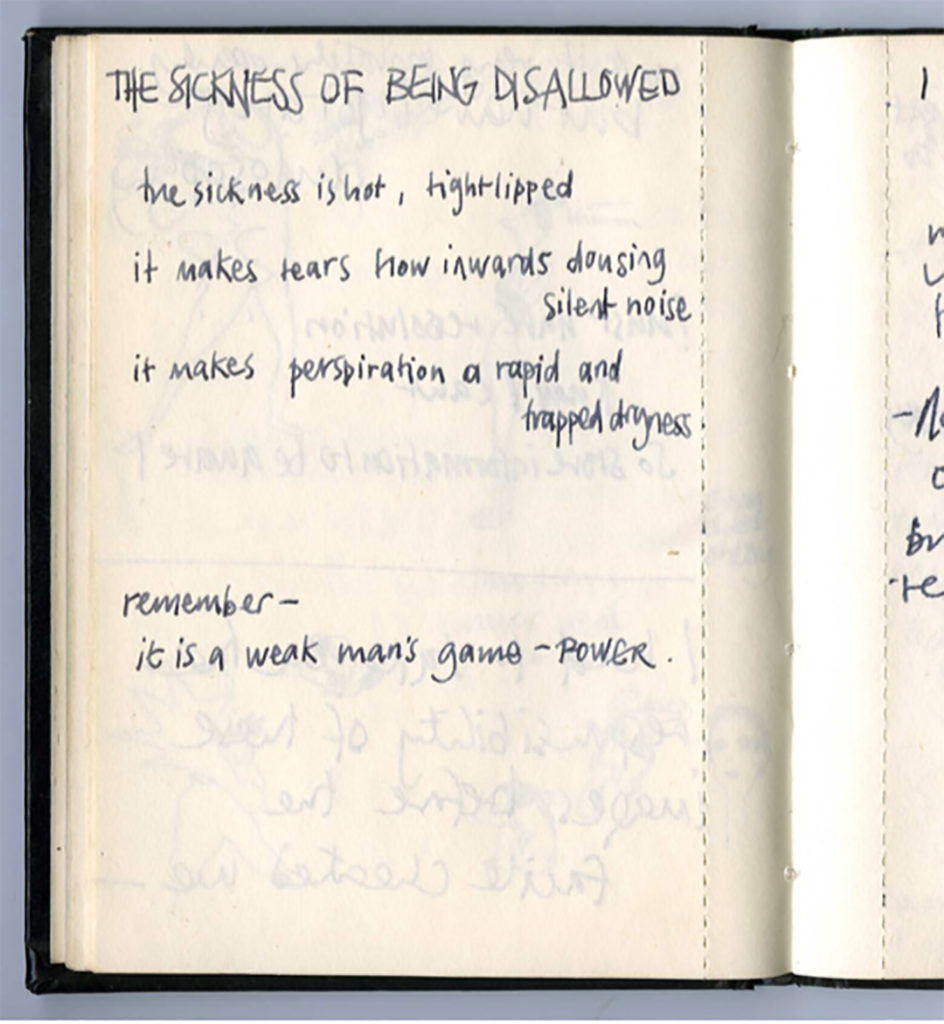 THE SICKNESS OF BEING DISALLOWED
the sickness is hot, tight-lipped
it makes tears flow inwards dousing
silent noise
it makes perspiration a rapid and
trapped dryness
remember –
it is a weak man's game – POWER.